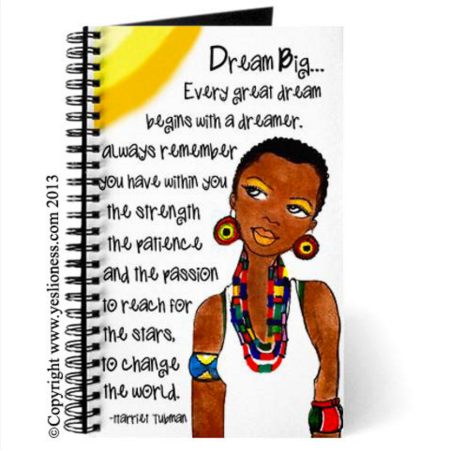 Dream Big...
Every great dream
begins with a dreamer.
always remember
you have within you
the strength
the patience
and the passion
to reach for
the stars,
to change
the world.
-Harriet Tubman
©Copyright www.yeslioness.com 2013